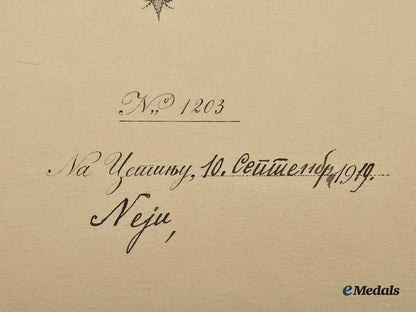 № 1203
На Цетињу, 10. Септембра 1919.
Neju,
eMedals